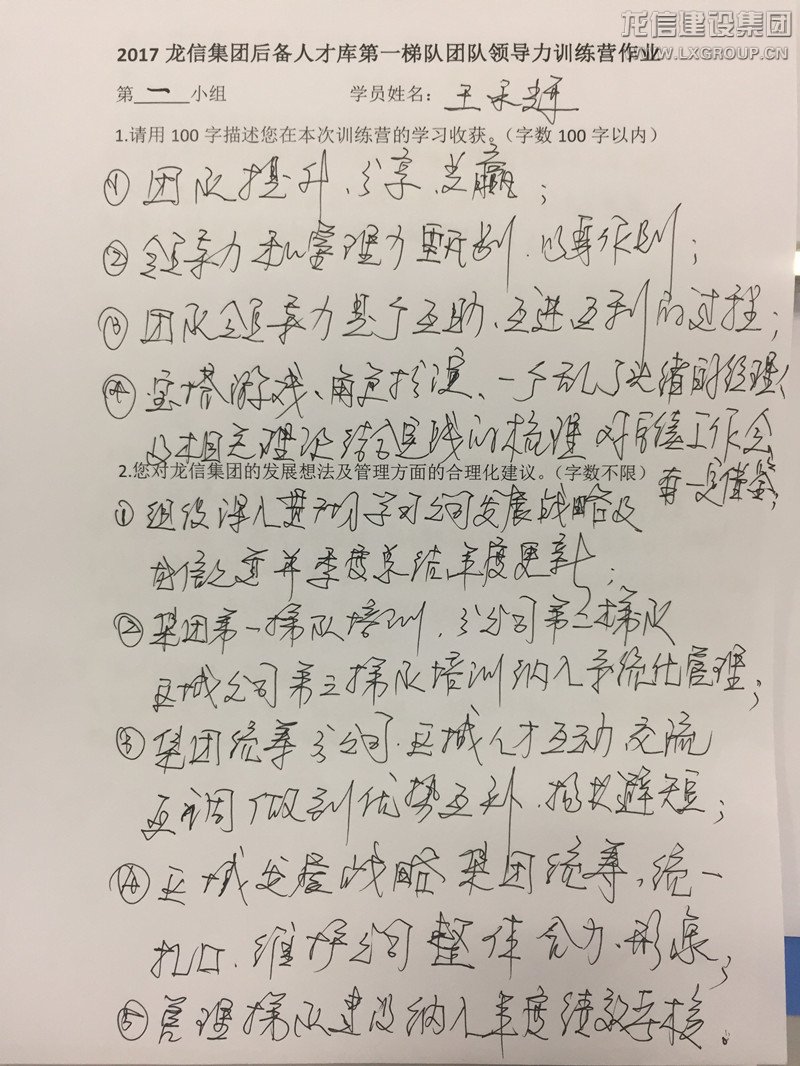 龙信建设集团
WWW.LXGROUP.CN
2017 龙信集团后备人才库第一梯队团队领导力训练营作业
第 一 小组 学员姓名：王
1.请用 100 字描述您在本次训练营的学习收获。（字数 100 字以内）
① 团队提升、分享、共赢；
② 领导力和管理力甄别，以身作则；
③ 团队领导力是个互助、互进、互利的过程；
④ 宝塔游戏、角色扮演、一个乱了头绪的经理人
及相关理论结合实践的梳理 对后续工作会
有一定借鉴；
2.您对龙信集团的发展想法及管理方面的合理化建议。（字数不限）
① 组织深入贯彻学习公司发展战略及
龙信之道并季度总结年度更新；
② 集团第一梯队培训，分公司第二梯队
区域公司第三梯队培训纳入系统化管理；
③ 集团统筹分公司、区域人才互动交流
互调 做到优势互补、扬长避短；
④ 区域发营战略集团统筹，统一
扎口，维护公司整体合力、形象；
⑤ 管理梯队建设纳入年度绩效考核。